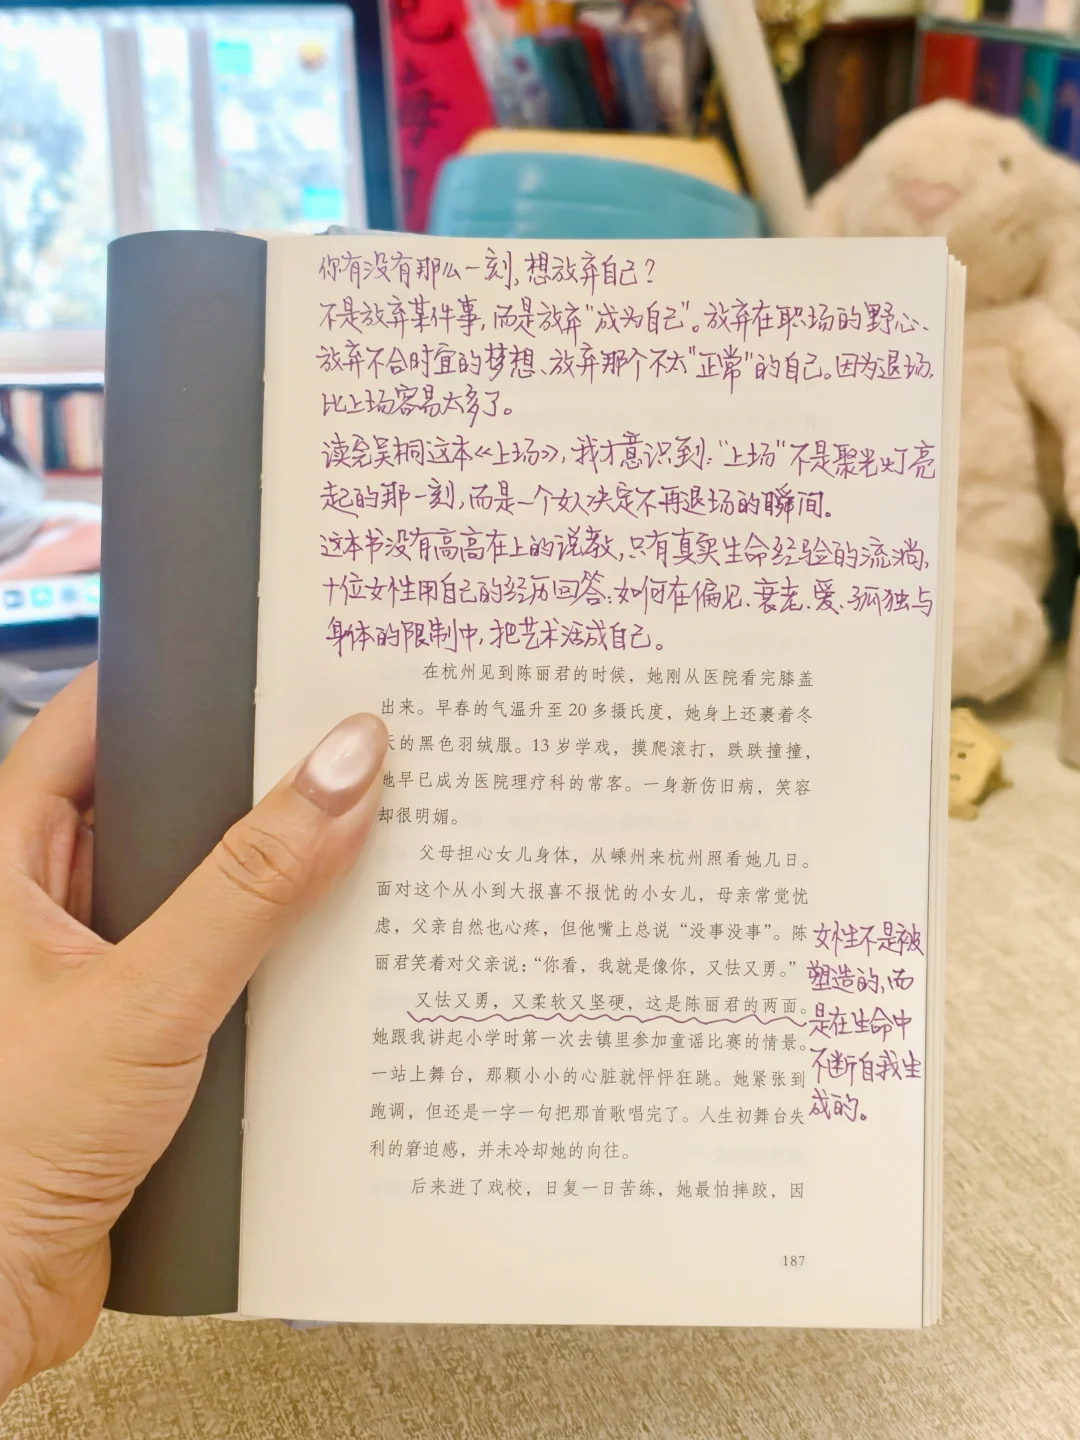 你有没有那么一刻,想放弃自己?
不是放弃某件事,而是放弃"成为自己"。放弃在职场的野心、
放弃不合时宜的梦想、放弃那个不太"正常"的自己。因为退场,
比上场容易太多了。
读完吴桐这本《上场》,我才意识到:"上场"不是聚光灯亮
起的那一刻,而是一个女人决定不再退场的瞬间。
这本书没有高高在上的说教,只有真实生命经验的流淌,
十位女性用自己的经历回答:如何在偏见、衰老、爱、孤独与
身体的限制中,把艺术活成自己。
在杭州见到陈丽君的时候，她刚从医院看完膝盖
出来。早春的气温升至 20 多摄氏度，她身上还裹着冬
天的黑色羽绒服。13 岁学戏，摸爬滚打，跌跌撞撞，
她早已成为医院理疗科的常客。一身新伤旧病，笑容
却很明媚。
父母担心女儿身体，从嵊州来杭州照看她几日。
面对这个从小到大报喜不报忧的小女儿，母亲常觉忧
虑，父亲自然也心疼，但他嘴上总说“没事没事”。陈
丽君笑着对父亲说：“你看，我就是像你，又怯又勇。”
又怯又勇，又柔软又坚硬，这是陈丽君的两面。
她跟我讲起小学时第一次去镇里参加童谣比赛的情景。
一站上舞台，那颗小小的心脏就怦怦狂跳。她紧张到
跑调，但还是一字一句把那首歌唱完了。人生初舞台失
利的窘迫感，并未冷却她的向往。
后来进了戏校，日复一日苦练，她最怕摔跤，因
女性不是被
塑造的,而
是在生命中
不断自我生
成的。
187